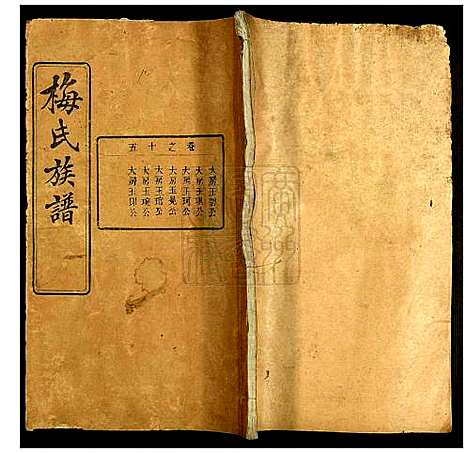 梅氏族譜
卷之十五
大房玉對公
大房玉琪公
大房玉珂公
大房玉晃公
大房玉琯公
大房玉琬公
大房玉印公